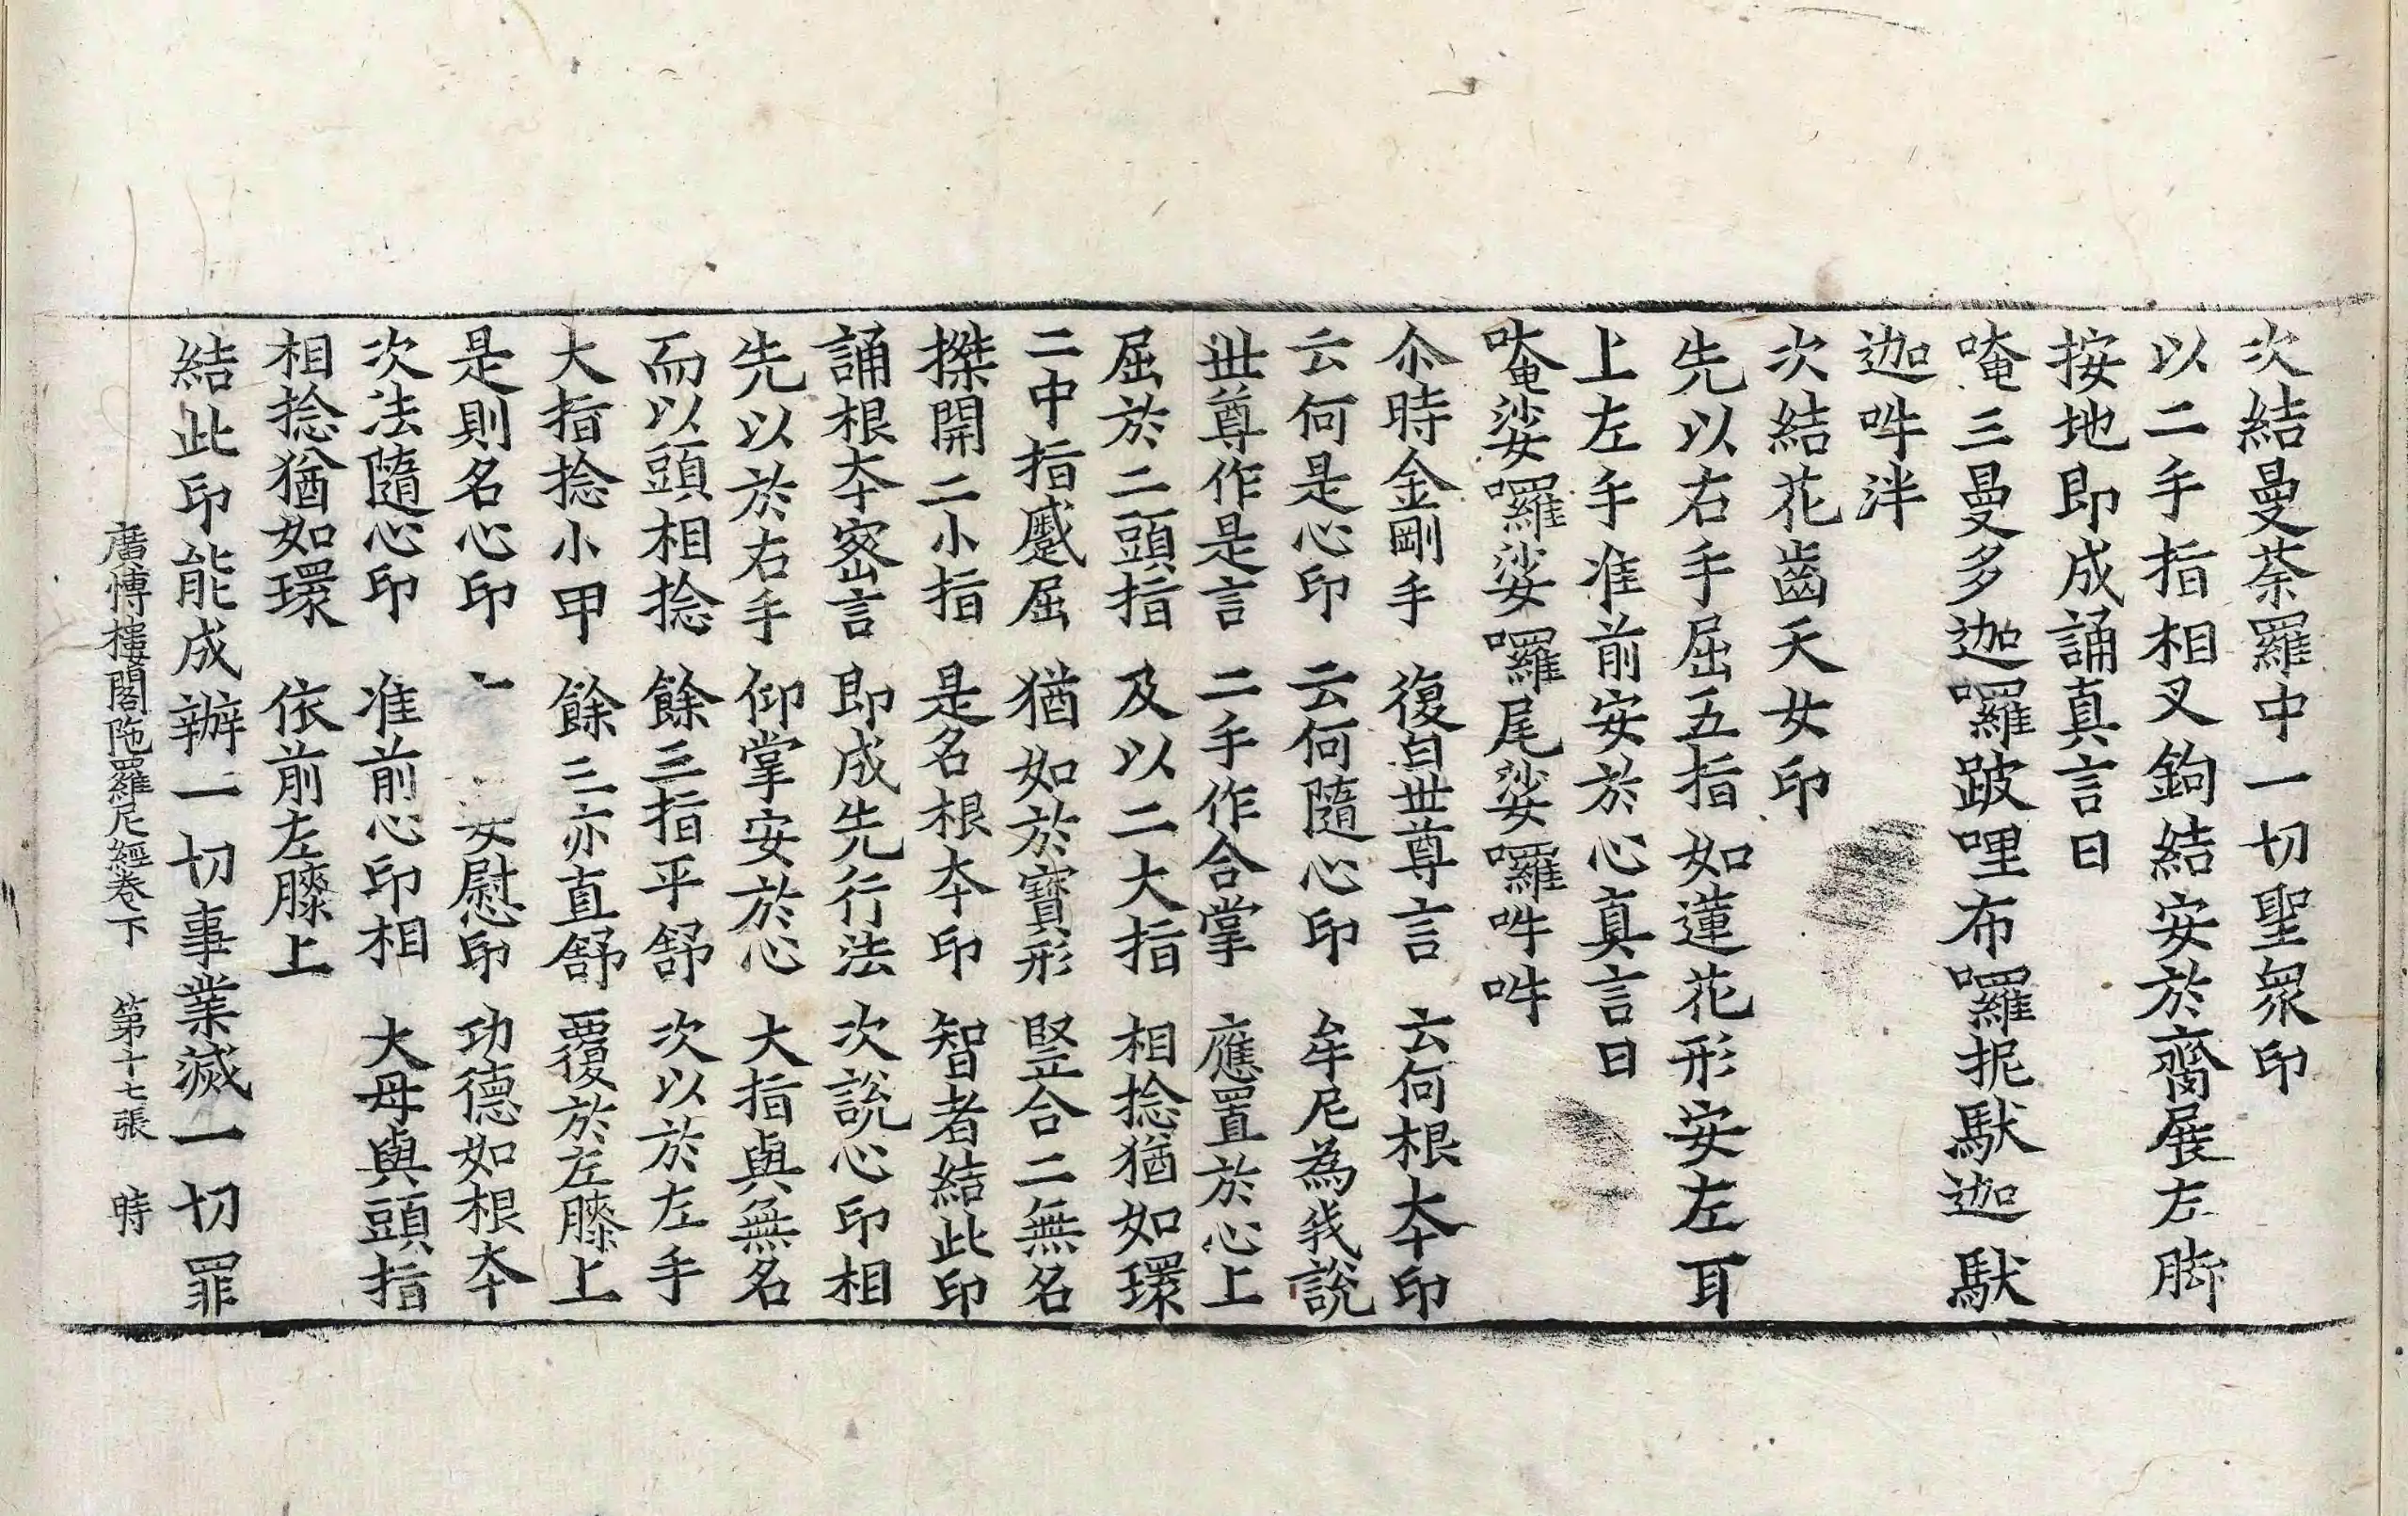 次結曼荼羅中一切聖衆印
以二手指相叉鉤結安於齎展左脚
按地即成誦真言曰
唵三曼多迦囉跛哩布囉抳馱迦馱
迦吽泮
次結花齒天女印
先以右手屈五指如蓮花形安左耳
上左手准前安於心真言曰
唵娑囉娑囉尾娑囉吽吽
尒時金剛手　復白世尊言　云何根夲印
云何是心印　云何隨心印　牟尼為我說
世尊作是言　二手作合掌　應置於心上
屈於二頭指　及以二大指　相捻猶如環
二中指蹙屈　猶如於寶形　竪合二無名
搩開二小指　是名根夲印　智者結此印
誦根夲密言　即成先行法　次說心印相
先以於右手　仰掌安於心　大指與無名
而以頭相捻　餘三指平舒　次以於左手
大指捻小甲　餘三亦直舒　覆於左膝上
是則名心印　安慰印　功德如根夲
次法隨心印　准前心印相　大母與頭指
相捻猶如環　依前左膝上
結此印能成辦一切事業滅一切罪
廣愽樓閣陁羅尼經卷下　第十七張　時